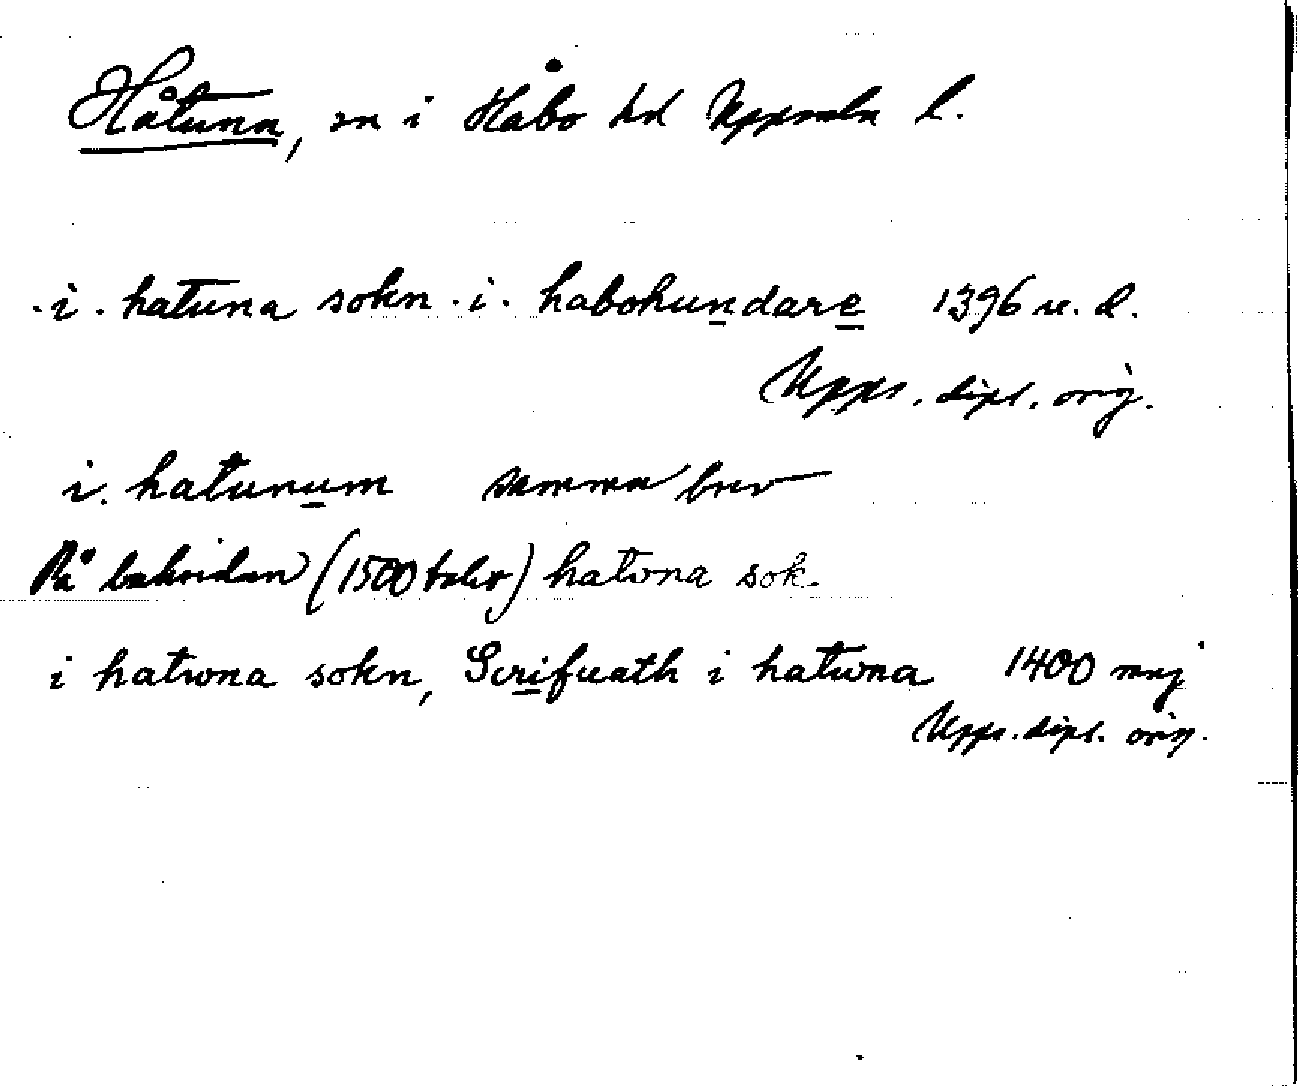 Håtuna, sn i Håbo hd Uppsala l.
.i. hatuna sokn .i. habohundare 1396 u. d.
Upps. dipl. orig.
i. hatunum samma brev
På baksidan (1500 talet) hatvna sok.
i hatwna sokn, Scrifuath i hatwna 1400 maj
Upps. dipl. orig.